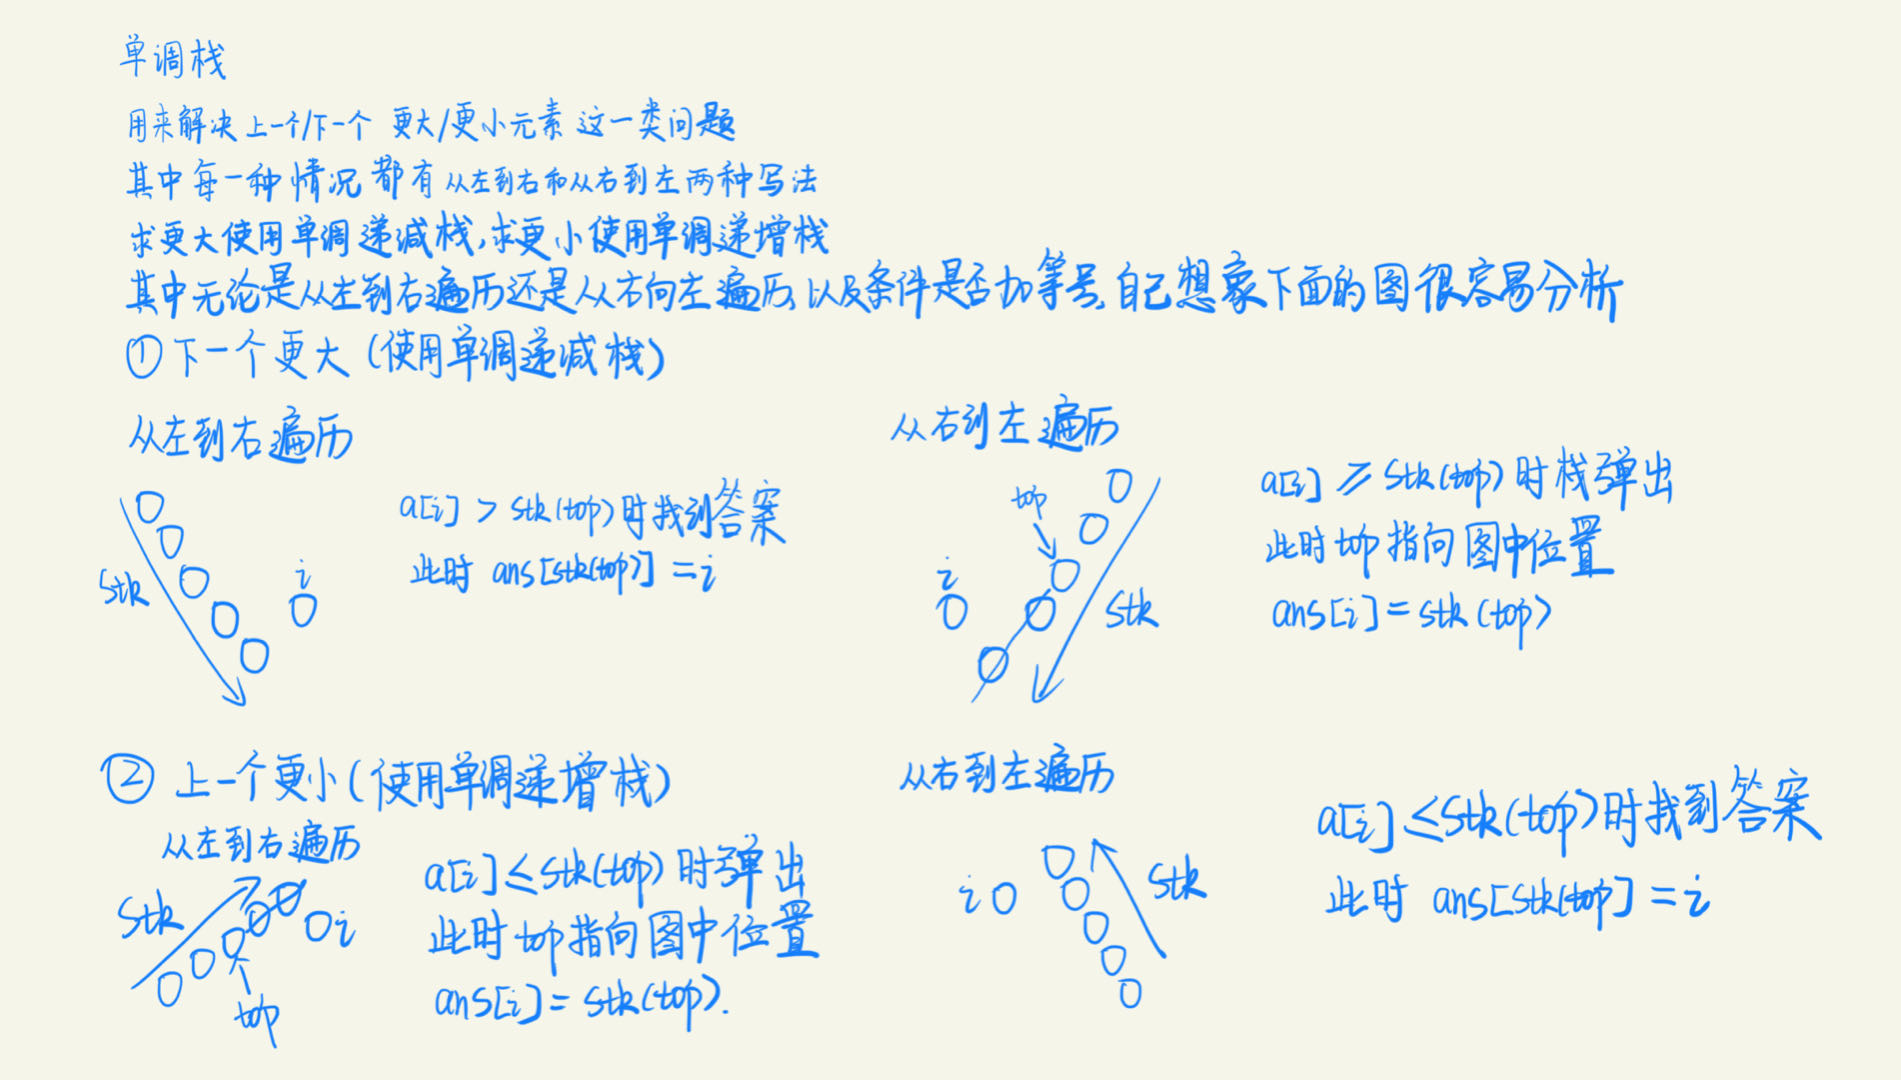 单调栈
用来解决上一个/下一个 更大/更小元素 这一类问题
其中每一种情况都有从左到右和从右到左两种写法
求更大使用单调递减栈,求更小使用单调递增栈
其中无论是从左到右遍历还是从右向左遍历,以及条件是否加等号,自己想象下面的图很容易分析
①下一个更大(使用单调递减栈)
从左到右遍历
stk
i
a[i] > stk(top)时找到答案
此时 ans[stk(top)] = i
从右到左遍历
top
i
stk
a[i] ≥ stk(top)时栈弹出
此时top指向图中位置
ans[i] = stk(top)
② 上一个更小(使用单调递增栈)
从左到右遍历
stk
i
top
a[i] ≤ stk(top)时弹出
此时top指向图中位置
ans[i] = stk(top).
从右到左遍历
i
stk
a[i] ≤ stk(top)时找到答案
此时 ans[stk(top)] = i